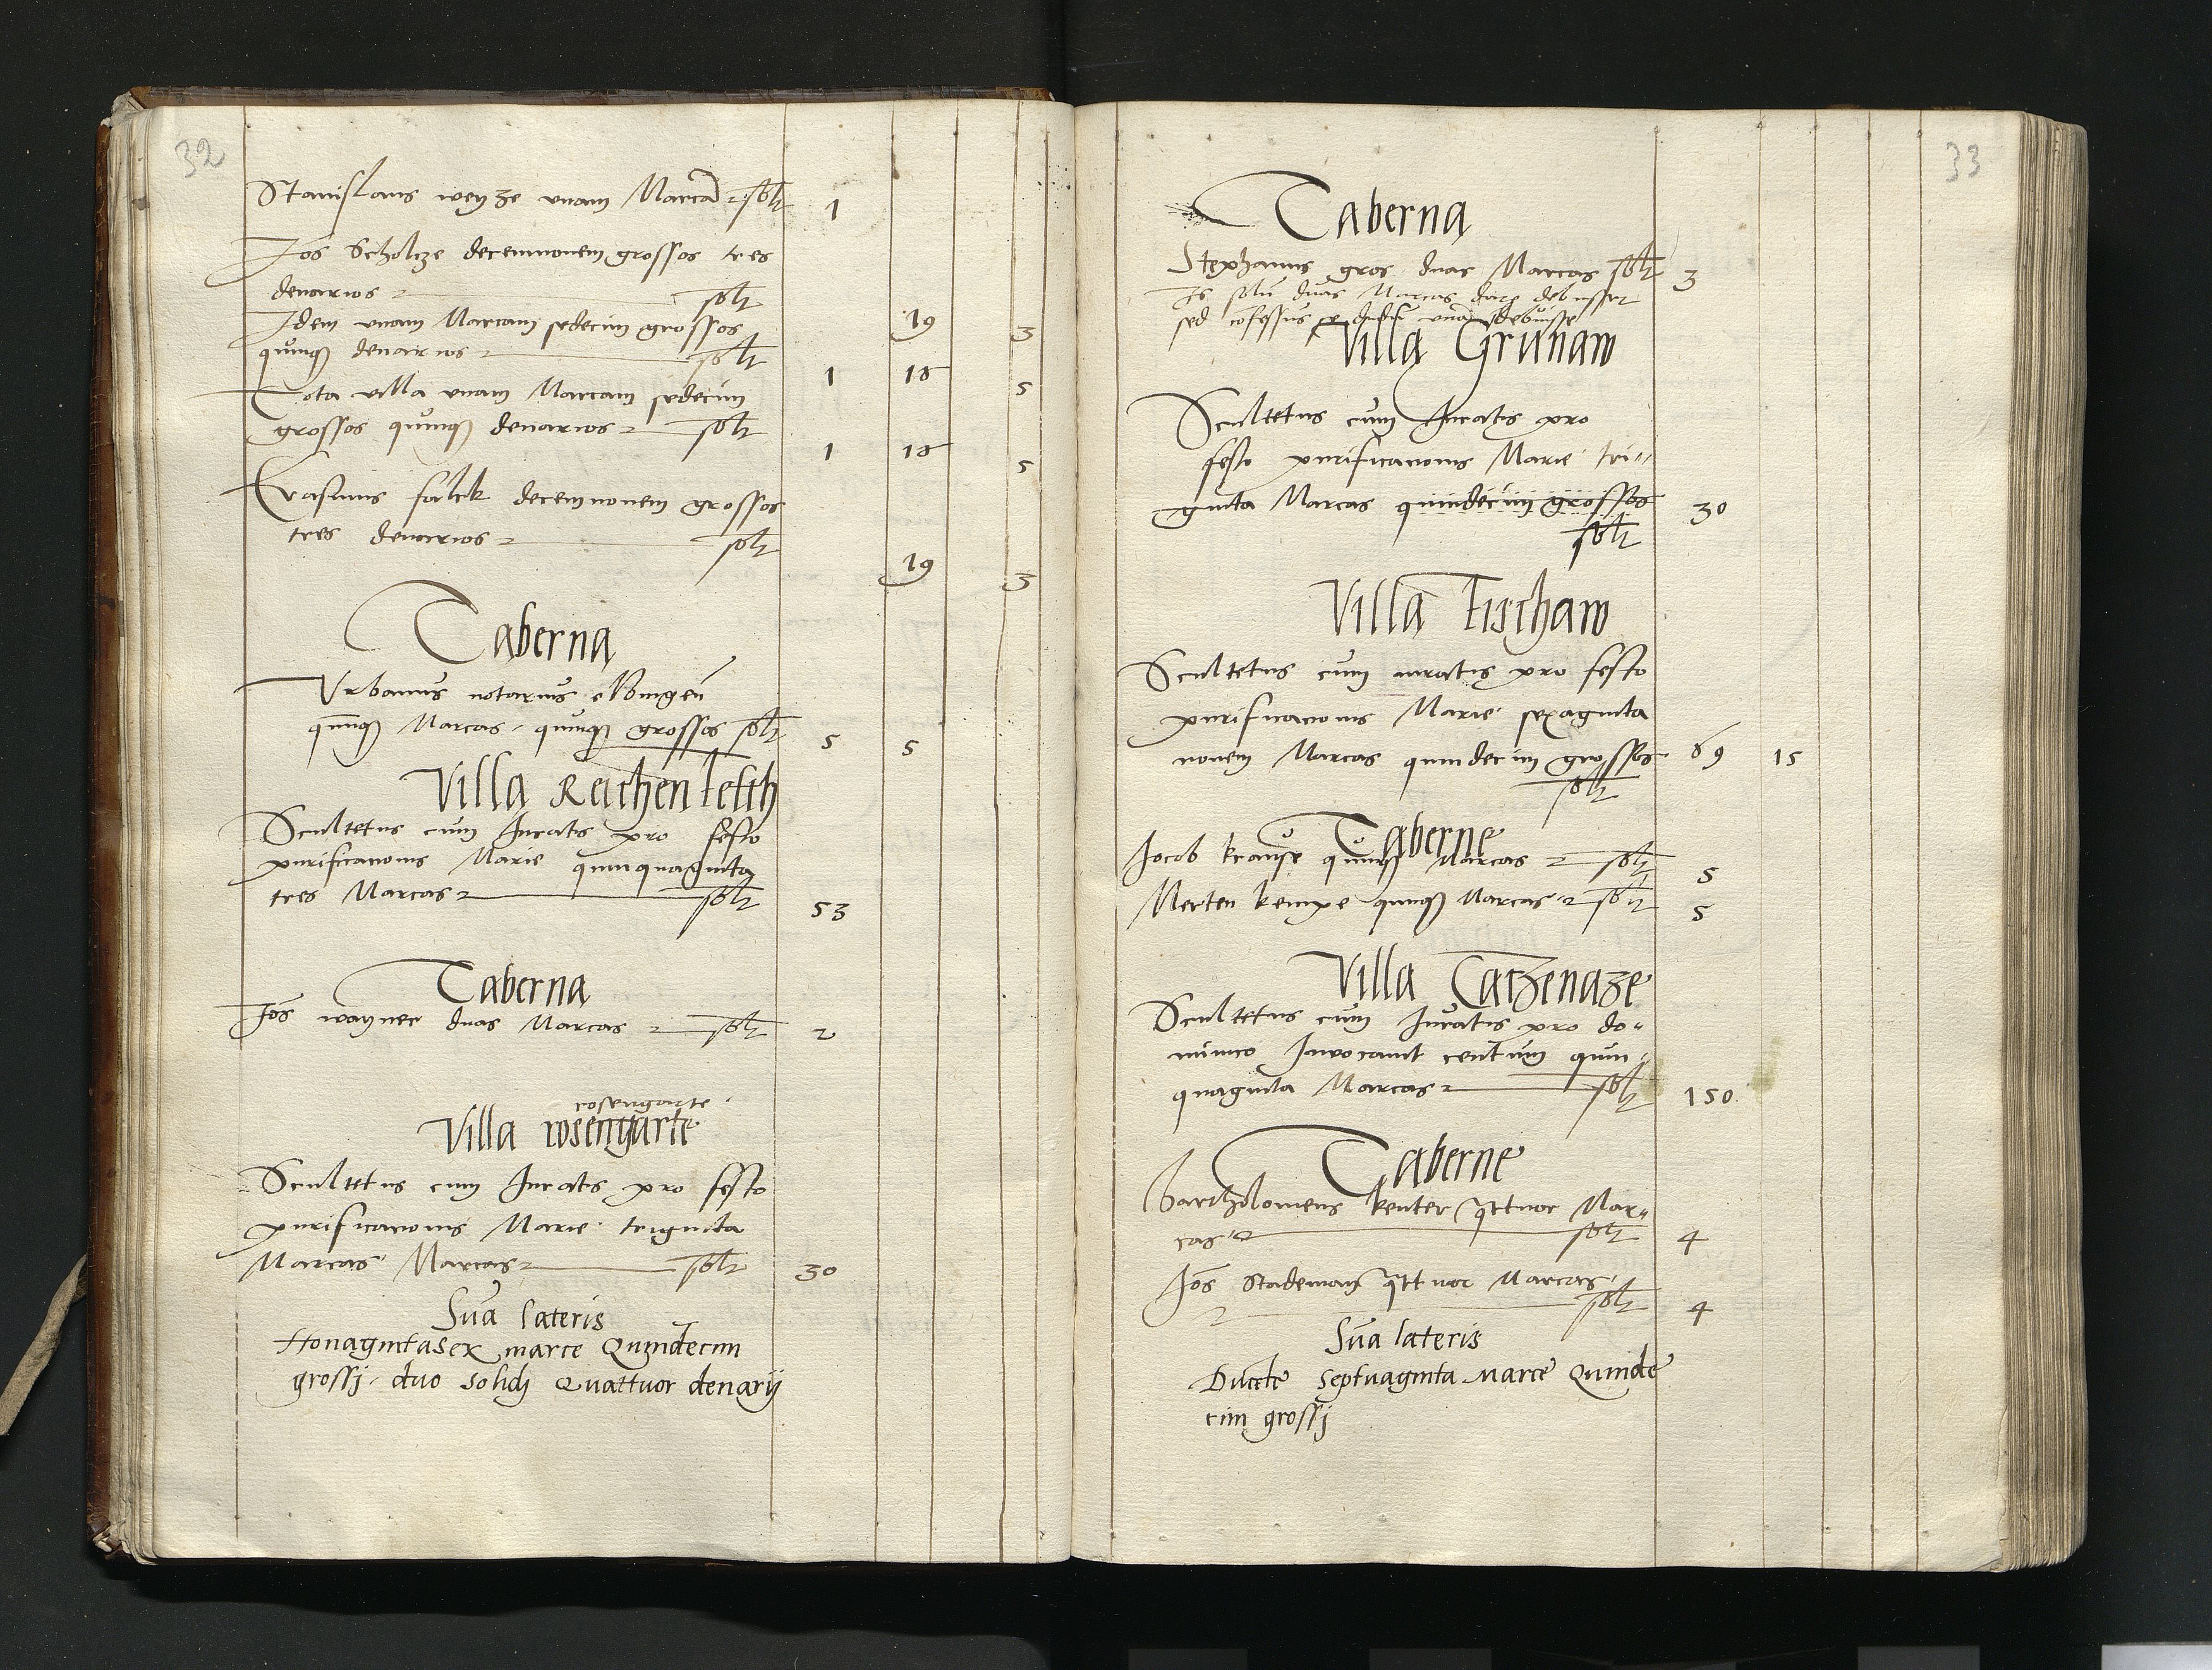 32
Stanislaus weyze vnam Marcā solt 1
Jos Scholcze decemnouem grossos tres
denarios solt 19 3
Idem vnam Marcam sedecim grossos
quinq denarios solt 1 16 5
Tota villa vnam Marcam sedecim
grossos quinq denarios solt 1 16 5
Erasmus falck decemnonem grossos
tres denarios solt 19 3
Taberna
Vrbanus notarius elbingeñ
quinq Marcas quinq grossos solt 5 5
Villa Reichenfelth
Scultetus cum Juratis pro festo
purificationis Marie quinquaginta
tres Marcas solt 53
Taberna
Jos wayner duas Marcas solt 2
rosengarte
Villa rosengarte
Scultetus cum Juratis pro festo
purificationis Marie triginta
Marcas Marcas solt 30
Sūa lateris
Nonagintasex marce Quindecim
grossi duo solidi Quattuor denarij
33
Taberna
Stephanus gros duas Marcas solt 3
Is solū duas Marcas dare debuisset
sed confessus se vnā debuisse
Villa Grunaw
Scultetus cum Juratis pro
festo purificationis Marie tri
ginta Marcas quindecim grossos 30
solt
Villa Fischaw
Scultetus cum iuratis pro festo
purificationis Marie sexaginta
nouem Marcas quindecim grossos 69 15
solt
Taberne
Jocob krause quinq Marcas solt 5
Merten kempe quinq Marcas solt 5
Villa Catzenaze
Scultetus cum Juratis pro do
minico Inuocauit centum quin
quaginta Marcas solt 150
Taberne
Bartholomeus kenter qttuor Mar
cas solt 4
Jos Stademan qttuor Marcas
solt 4
Sūa lateris
Ducēte septuaginta Marce Quinde
cim grossj